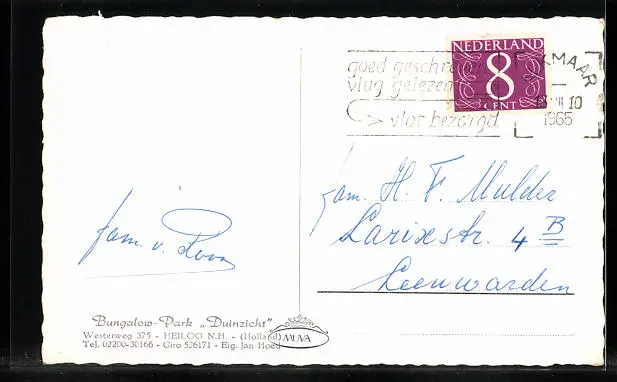 NEDERLAND
8
CENT
goed geschreven
vlug gelezen
vlot bezorgd
ALKMAAR
10
1965
fam. H. F. Mulder
Larixstr. 4 B
Leeuwarden
fam. v. Roon
Bungalow-Park „Duinzicht"
Westerweg 375 - HEILOO N.H. - (Holland)
Tel. 02200-30166 - Giro 526171 - Eig. Jan Hoed
MUVA